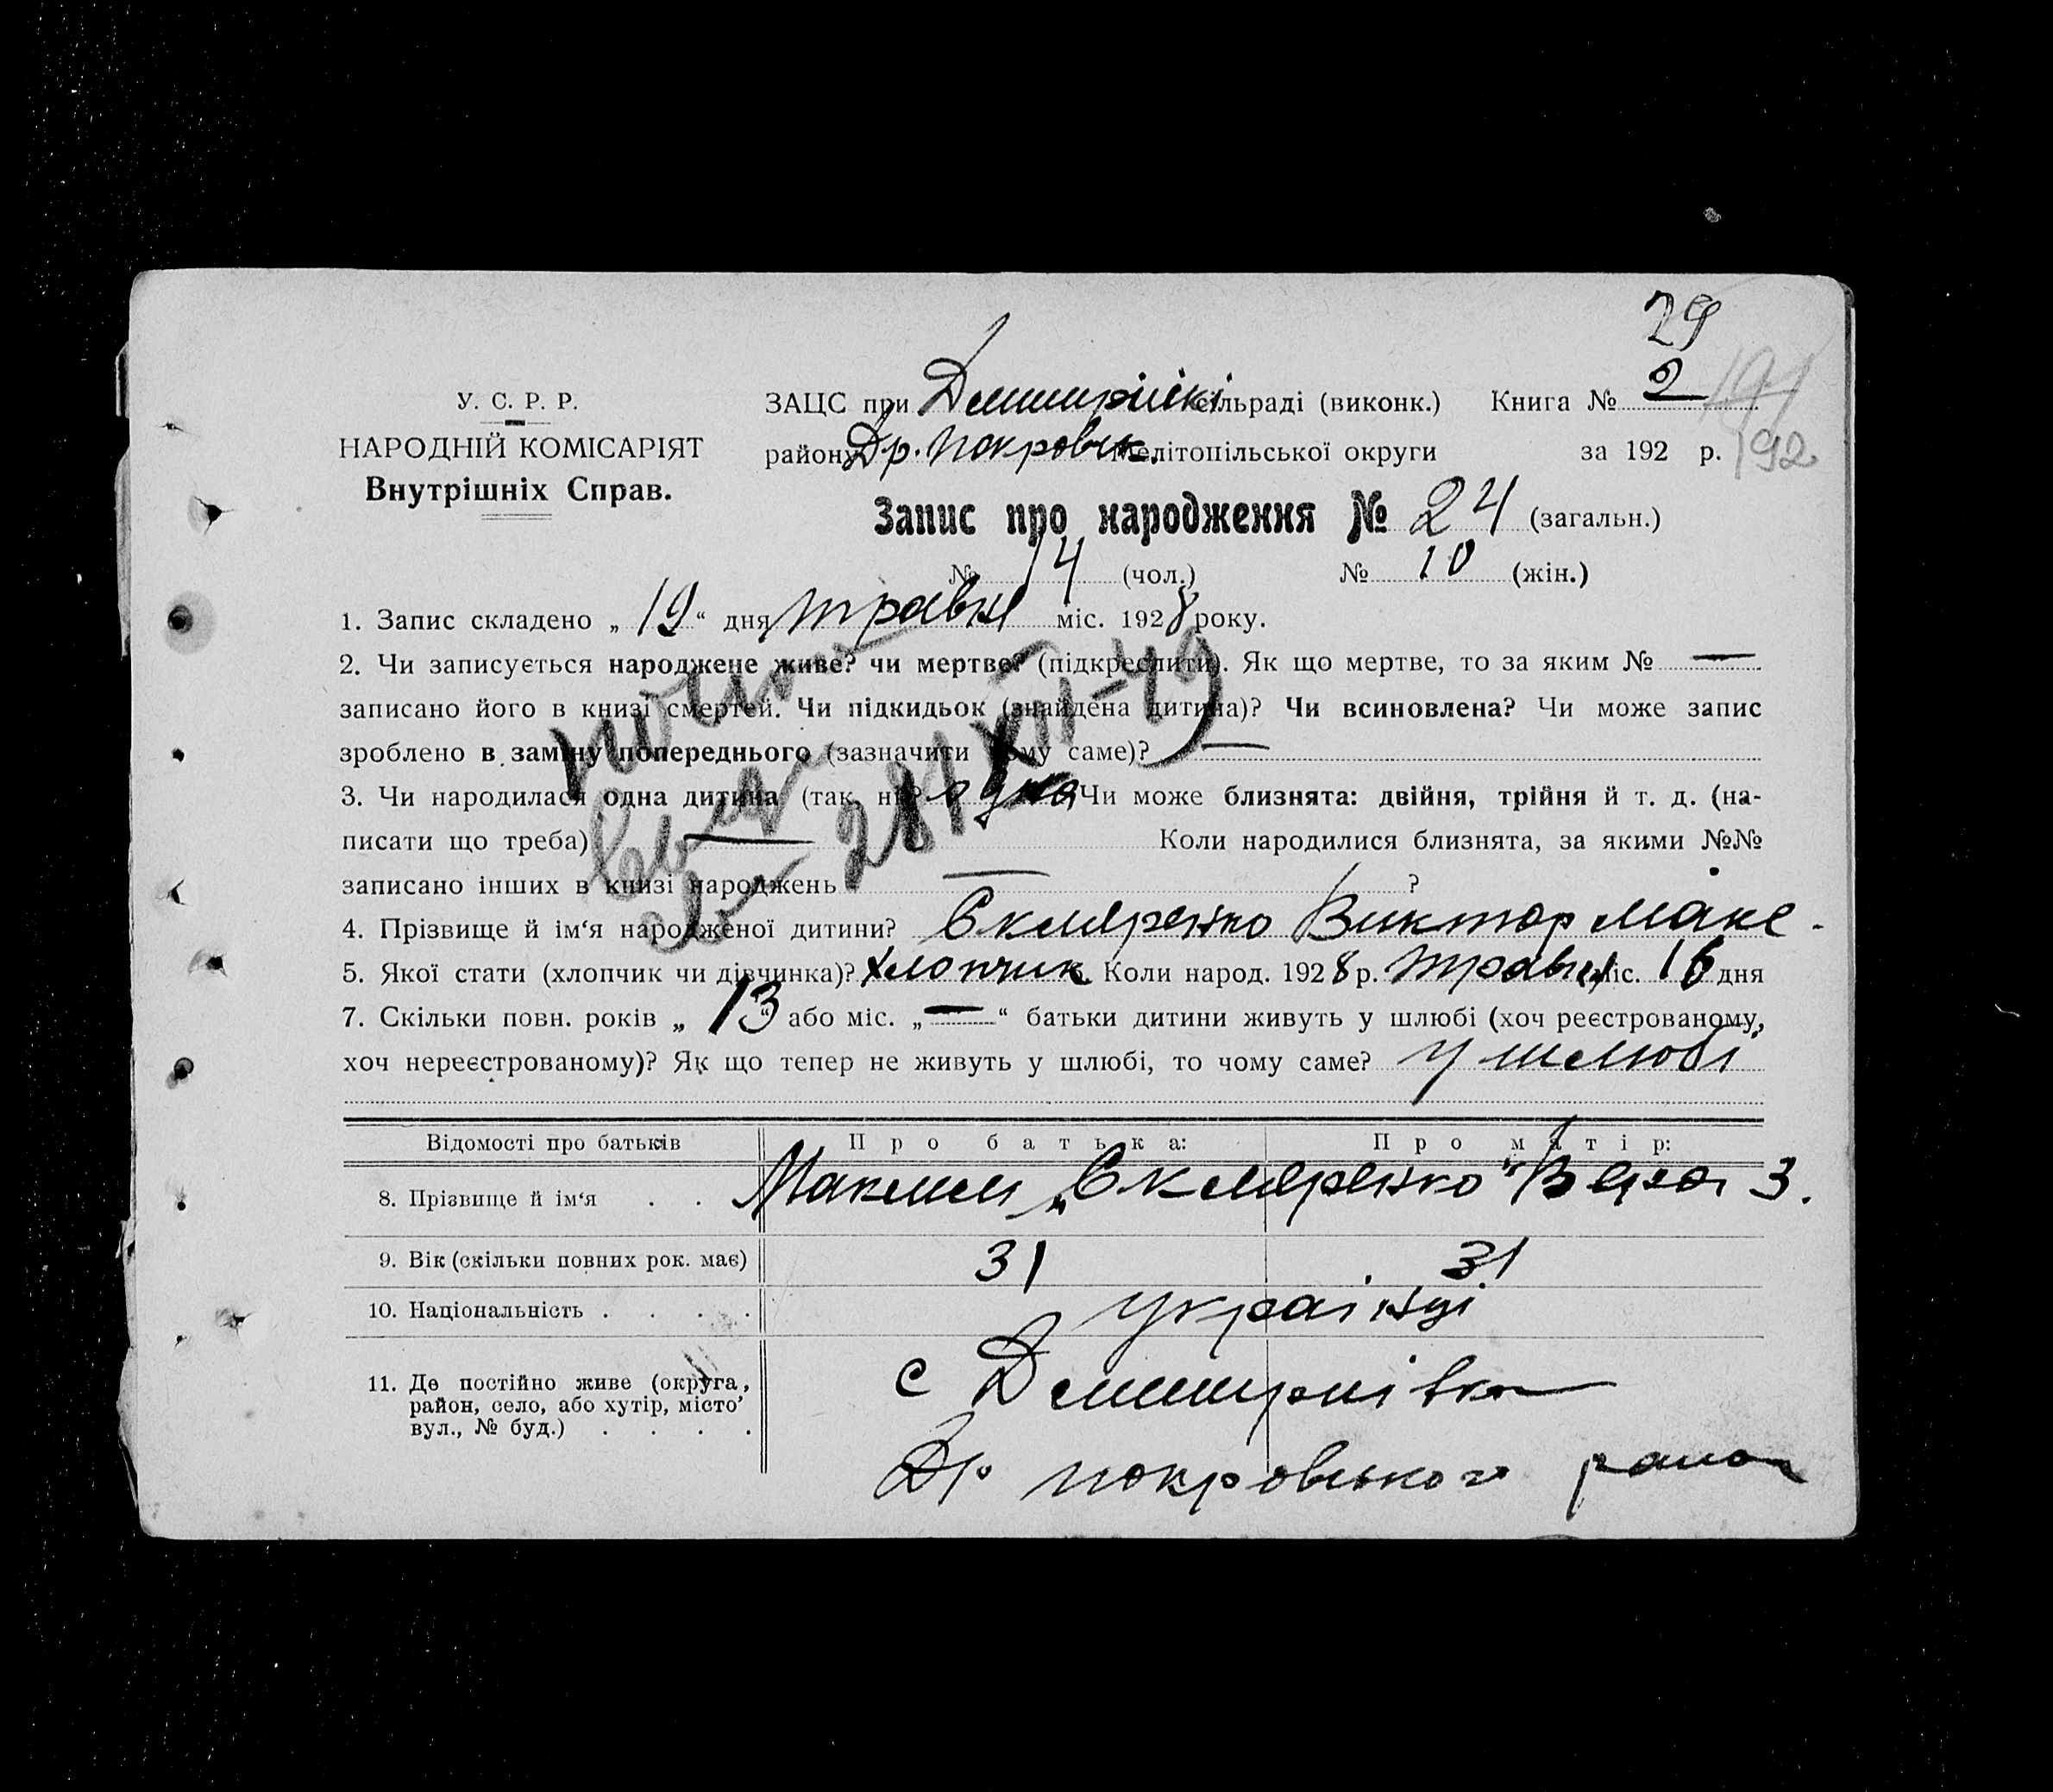 29
У. С. Р. Р.
НАРОДНІЙ КОМІСАРІЯТ
Внутрішніх Справ.
ЗАЦС при Демитрівскі сільраді (виконк.) Книга № 2 191
району Др. Покровськ. Мелітопільської округи за 192 р. 192
Запис про народження № 24 (загальн.)
№ 14 (чол.) № 10 (жін.)
1. Запис складено „ 19 “ дня травня міс. 1928 року.
2. Чи записується народжене живе? чи мертве? (підкреслити). Як що мертве, то за яким № —
записано його в книзі смертей. Чи підкидьок (знайдена дитина)? Чи всиновлена? Чи може запис
зроблено в заміну попереднього (зазначити чому саме)? —
3. Чи народилася одна дитина (так, ні)? одна Чи може близнята: двійня, трійня й т. д. (на-
писати що треба) — Коли народилися близнята, за якими №№
записано інших в книзі народжень — ?
28/XII-49
4. Прізвище й ім‘я народженої дитини? Скляренко Виктор Макс.
5. Якої стати (хлопчик чи дівчинка)? хлопчик Коли народ. 1928 р. травня міс. 16 дня
7. Скільки повн. років „ 13 “ або міс. „ — “ батьки дитини живуть у шлюбі (хоч реєстрованому,
хоч нереєстрованому)? Як що тепер не живуть у шлюбі, то чому саме? у шлюбі
Відомості про батьків Про батька: Про матір:
8. Прізвище й ім‘я . . Максим „Скляренко“ Вера З.
9. Вік (скільки повних рок. має) 31 31
10. Національність . . . . українці
11. Де постійно живе (округа, район, село, або хутір, місто, вул., № буд.) . . . . с Демитрівка
Др покровського район